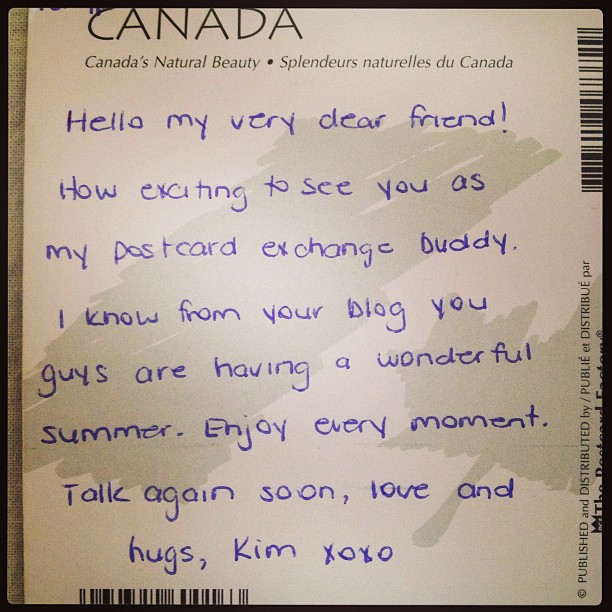 CANADA
Canada's Natural Beauty • Splendeurs naturelles du Canada
Hello my very dear friend!
How exciting to see you as
my postcard exchange buddy.
I know from your blog you
guys are having a wonderful
summer. Enjoy every moment.
Talk again soon, love and
hugs, Kim xoxo
© PUBLISHED and DISTRIBUTED by / PUBLIÉ et DISTRIBUÉ par
The Postcard Factory®